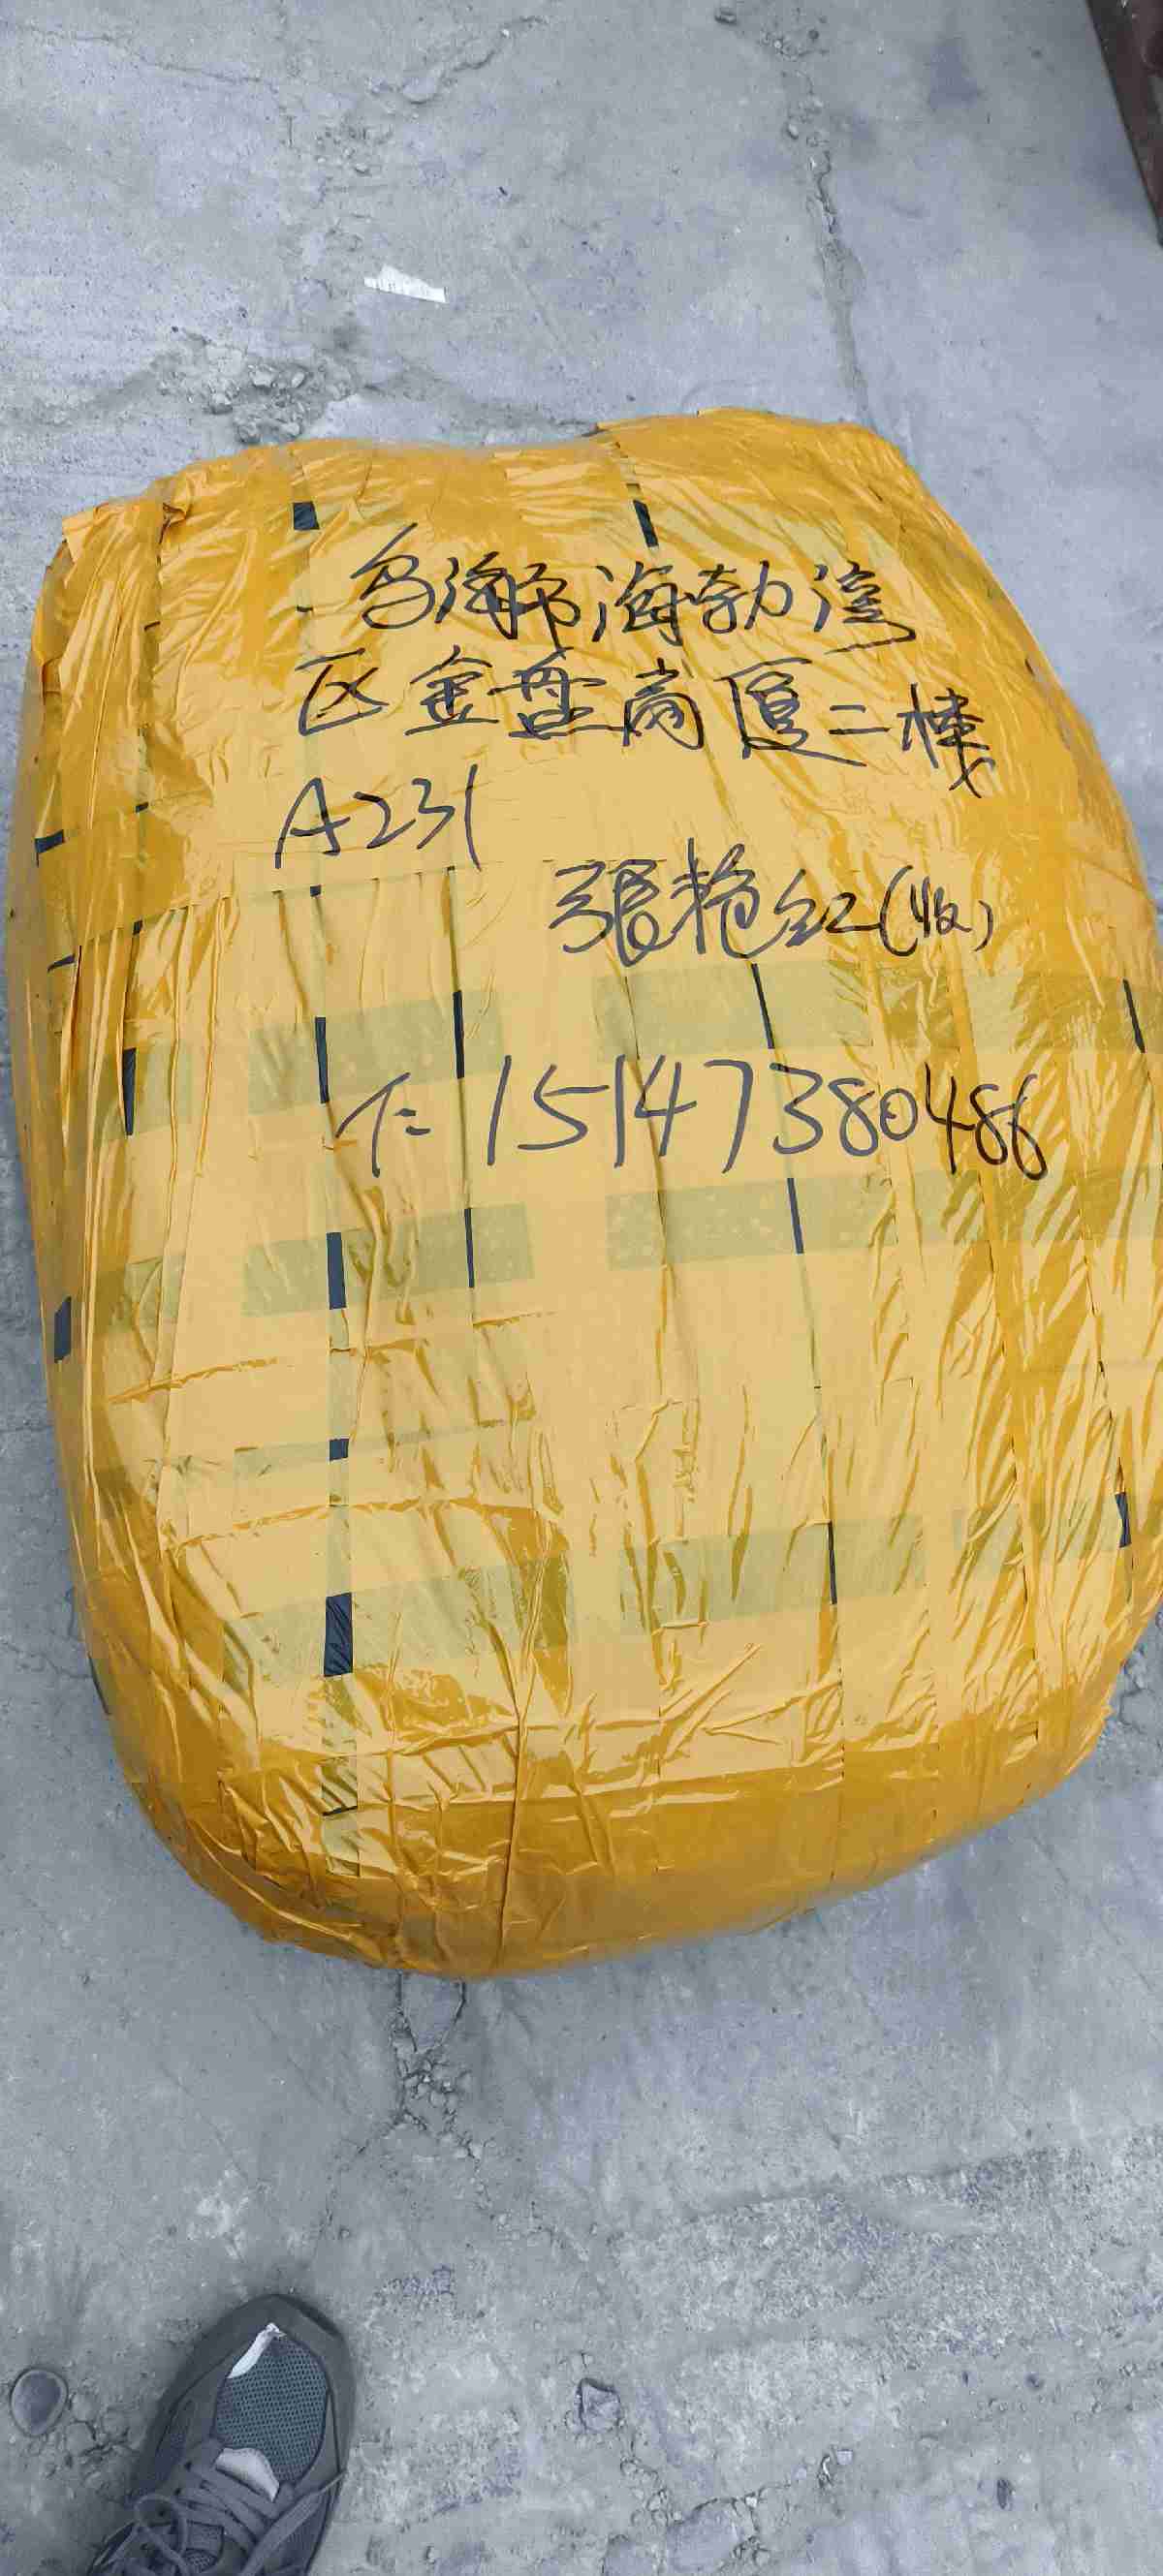 乌海市海勃湾
区金盘商厦二棟
A231
張艳红(收)
T=15147380486